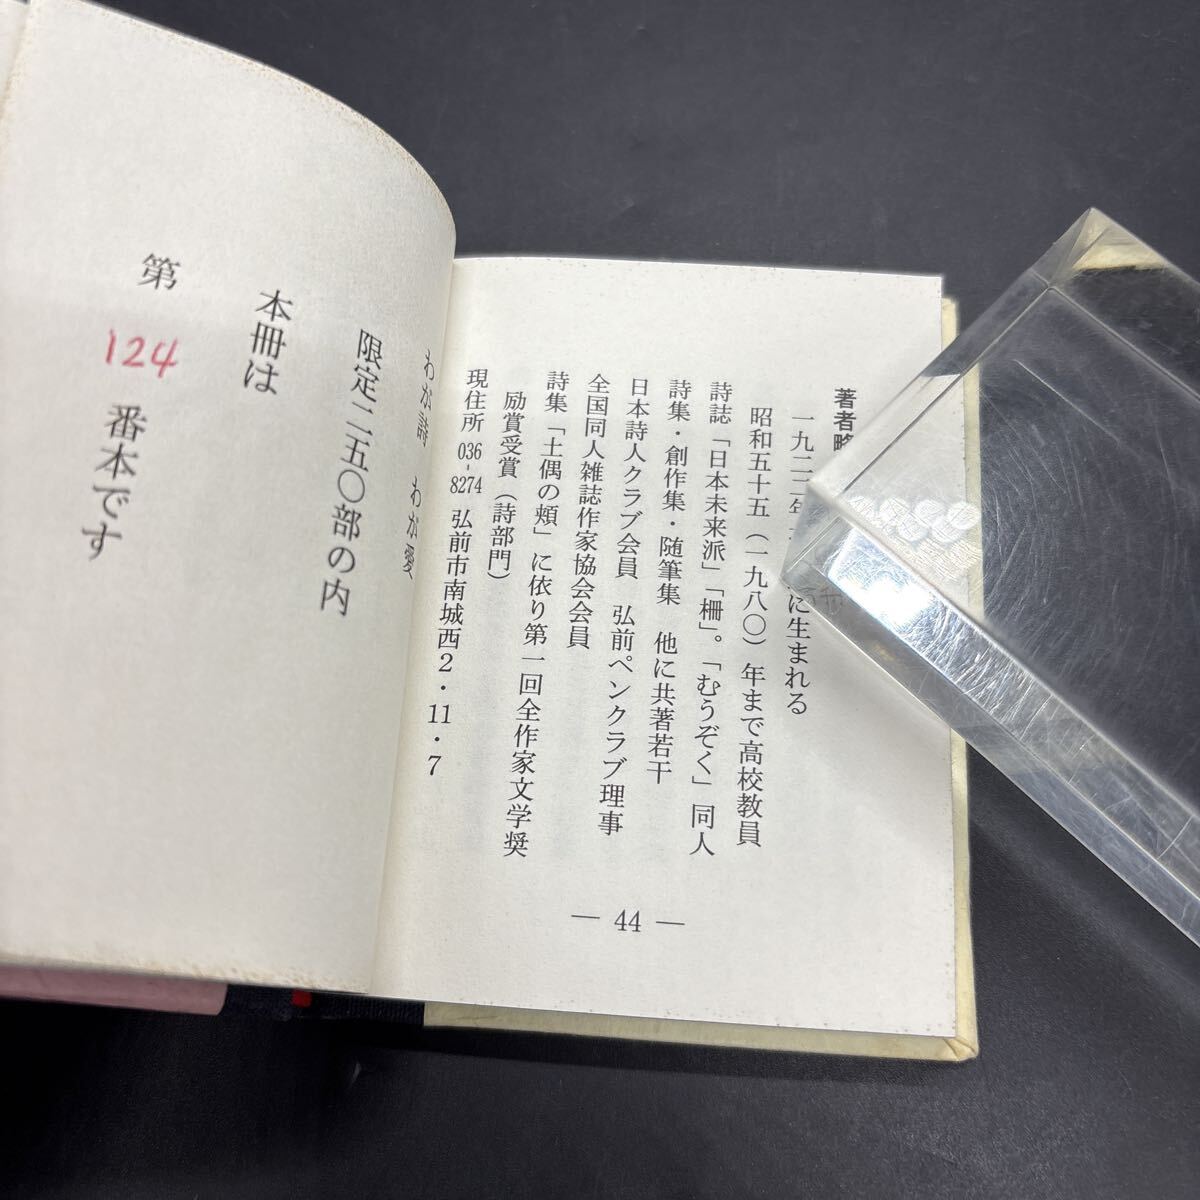 著者略
一九二二年
に生まれる
昭和五十五（一九八〇）年まで高校教員
詩誌「日本未来派」「柵」。「むうぞく」同人
詩集・創作集・随筆集　他に共著若干
日本詩人クラブ会員　弘前ペンクラブ理事
全国同人雑誌作家協会会員
詩集「土偶の頬」に依り第一回全作家文学奨
励賞受賞（詩部門）
現住所 036-8274 弘前市南城西2・11・7
— 44 —
わが詩　わが愛
限定二五〇部の内
本冊は
第 124 番本です